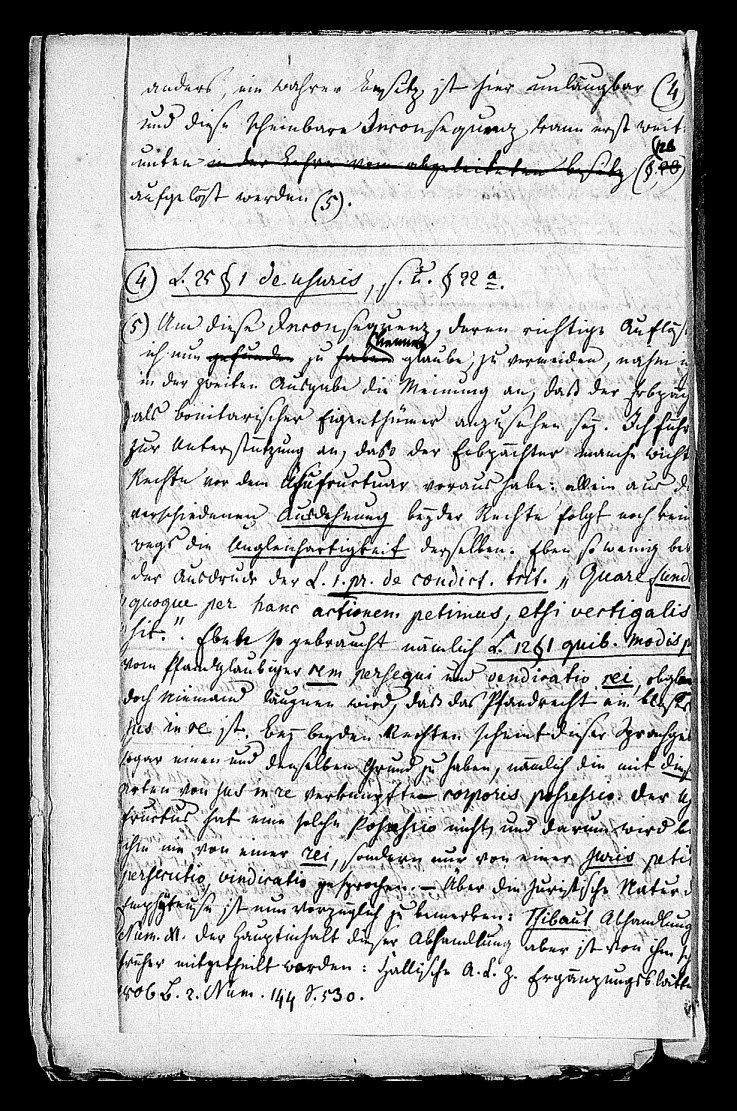 anders, ein wahrer Besitz ist hier unläugbar (4)
und diese scheinbare Inconsequenz kann erst weit
unten in der Lehre vom abgeleiteten Besitz (§.
aufgelöst werden (5).
(4) L. 25 § 1 de usuris, s. u. § 22 a.
(5) Um diese Inconsequenz, deren richtige Auflös
ich nun gefunden zu haben glaube, zu vermeiden, nahm
in der zweiten Ausgabe die Meinung an, daß der Erbpäc
als bonitarischer Eigenthümer anzusehen sey. Ich führ
zur Unterstützung an, dass der Erbpächter manche wicht
Rechte vor dem Usufructuar voraus habe: allein aus d
verschiedenen Ausdehnung beyder Rechte folgt noch kein
wegs die Ungleichartigkeit derselben. Eben so wenig be
der Ausdruck der L. 1. pr. de condict. trit. „Quare fund
quoque per hanc actionem petimus, etsi vectigalis
sit.". Eben so gebraucht nämlich L. 12 § 1 quib. modis p
vom Pfandgläubiger rem persequi und vendicatio rei, obgle
doch niemand läugnen wird, daß das Pfandrecht ein bloße
jus in re ist. Bey beyden Rechten scheint dieser Sprachge
sogar einen und denselben Grund zu haben, nämlich die mit die
Arten von jus in re verknüpfte corporis possessio. Der U
fructus hat eine solche Possessio nicht, und darum wird b
ihm nie von einer rei, sondern nur von einer juris petit
persecutio, vindicatio gesprochen. – Über die juristische Natur d
Emphyteuse ist nun vorzüglich zu bemerken: Thibaut Abhandlung
Num. XI. Der Hauptinhalt dieser Abhandlung aber ist von ihm
früher mitgetheilt worden: Hallische A. L. Z. Ergänzungsblätte
806 B. 2. Num. 144 S. 530.